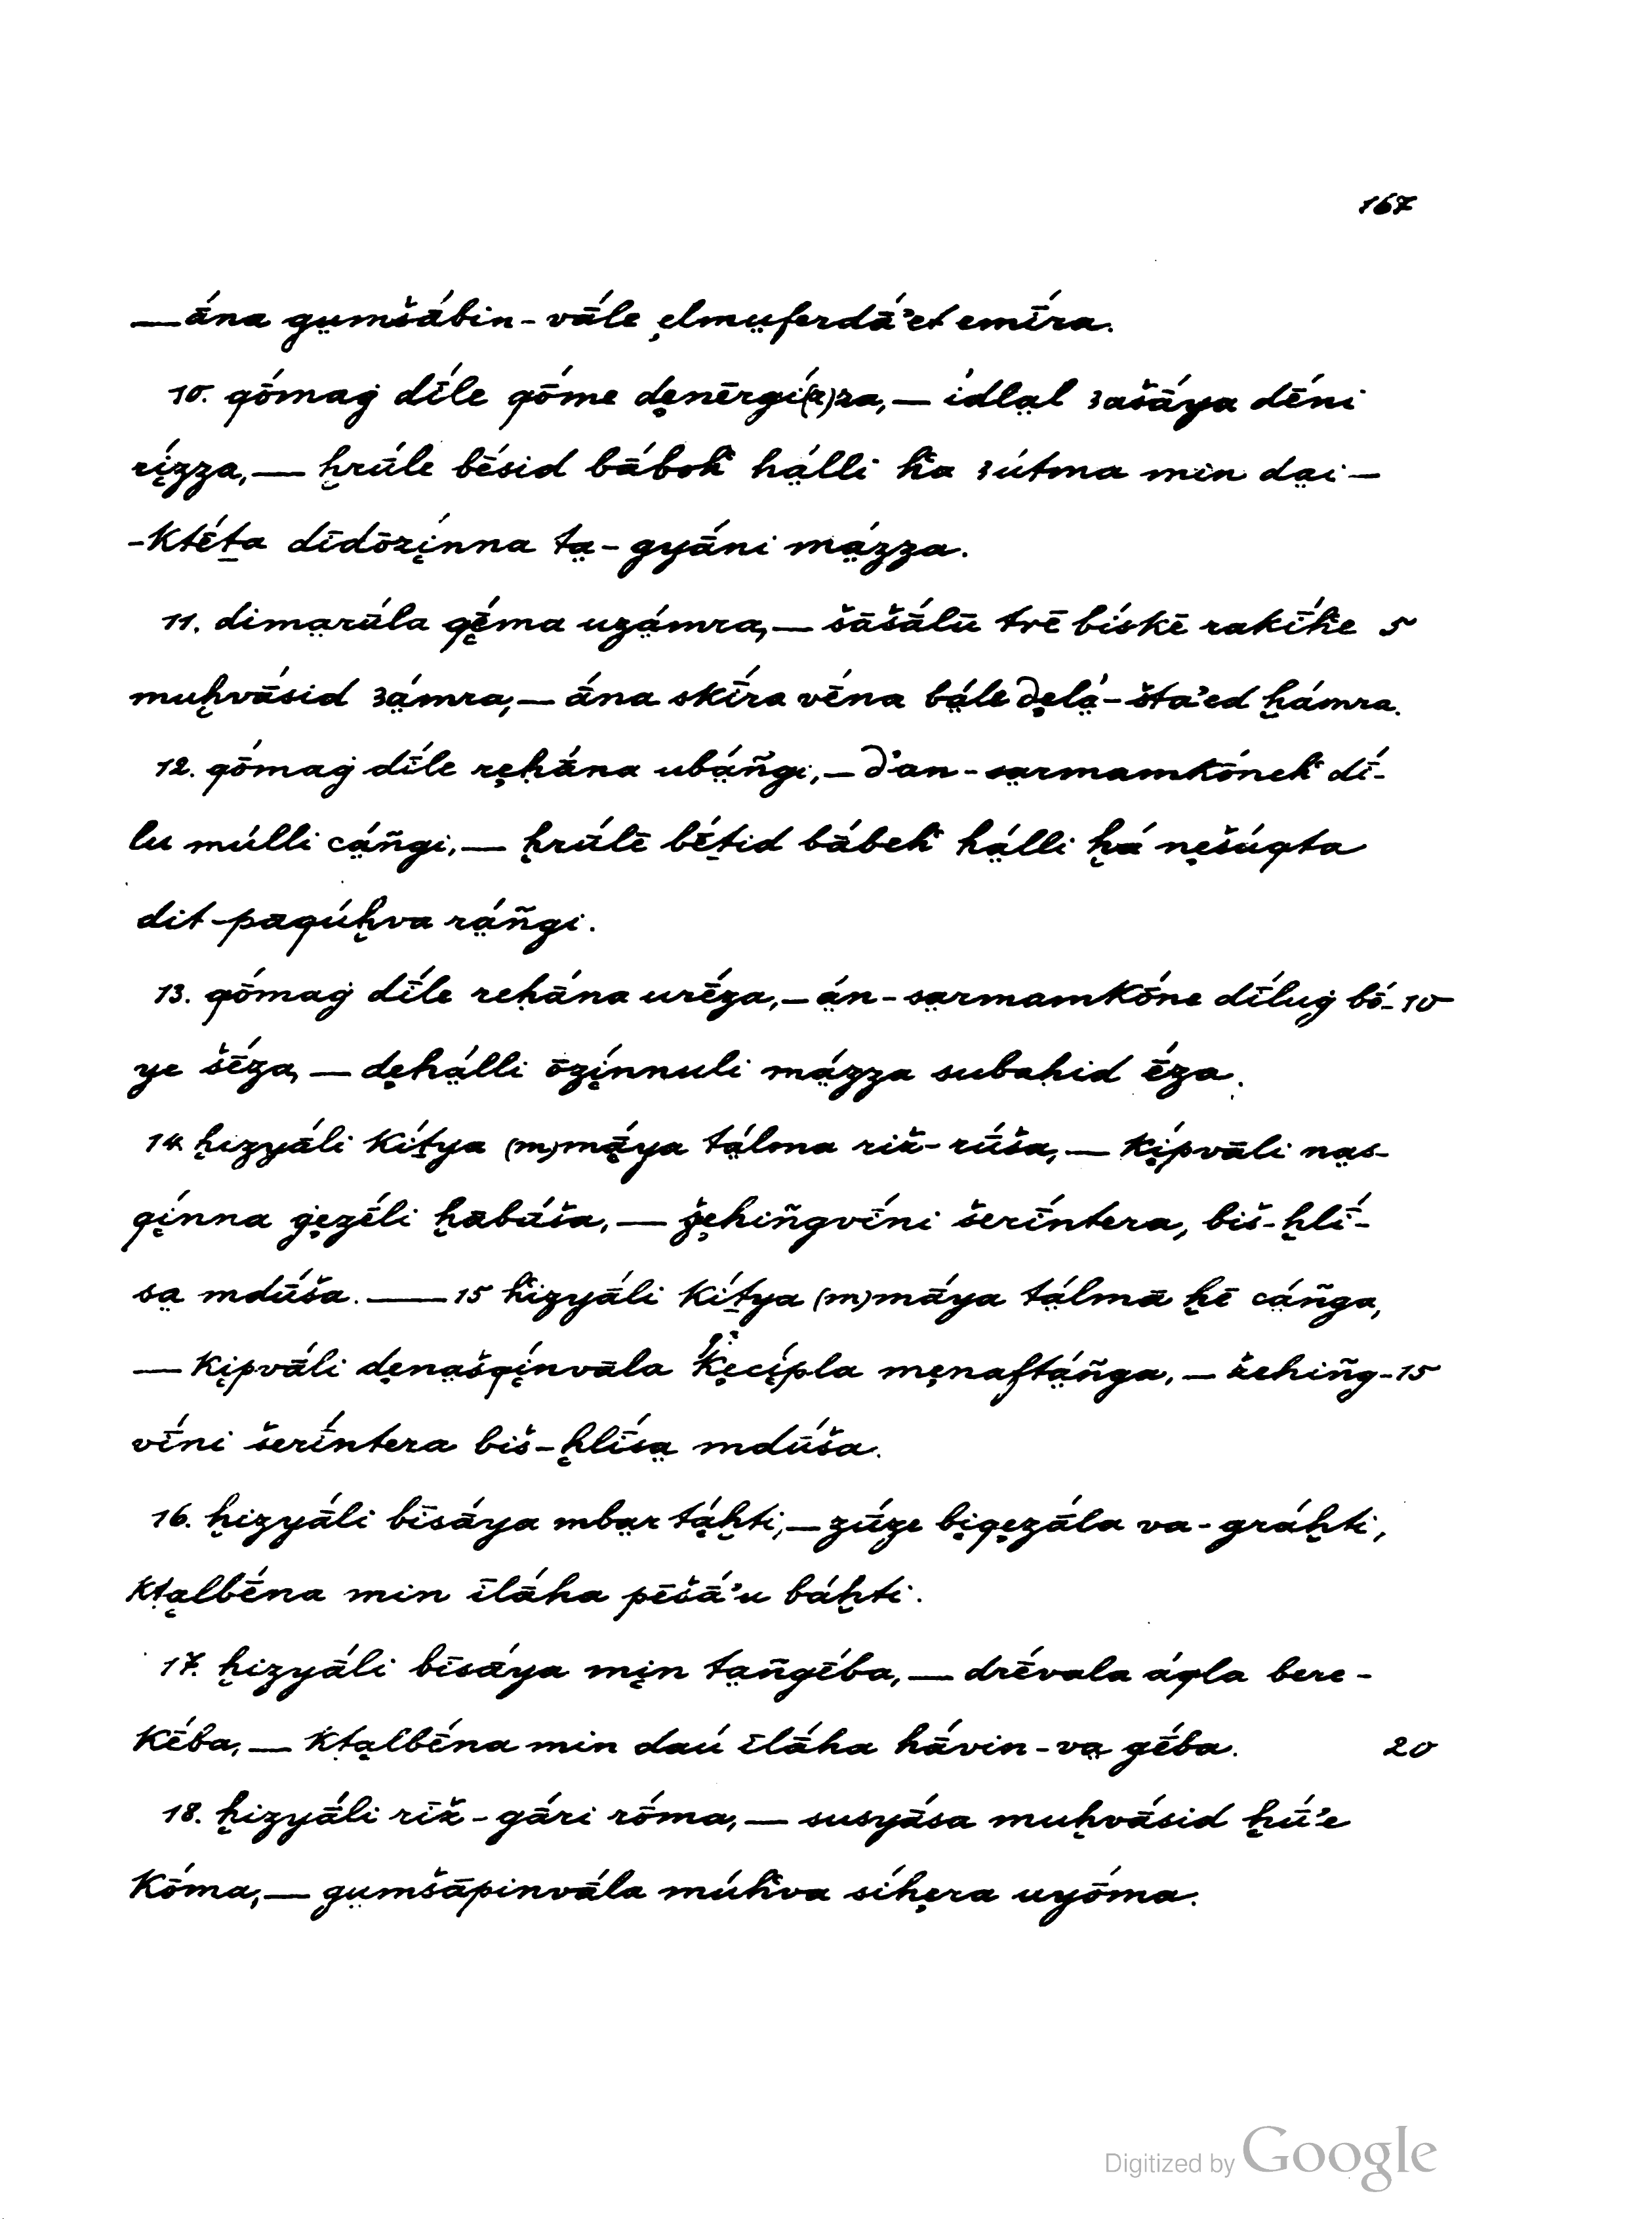 167
— ā́na gṳmšā́bin-vā́le ȩlmṳferdā́'et emī́ra.
10. qṓmaġ dī́le qṓme dȩnērgí(z)za, — ídla̤l ʒašā́ya dḗni
rį́zza, — ḫrū́le bḗsid bā́boȟ há̤lli ȟa ʒútma min da̤i-
-ktḗṯa dīdōzį́nna ta̤-gyā́ni má̤zza.
11. dima̤rū́la qȩ̄́ma uzá̤mra, — šāšā́lū trē bískē rakī́ȟe 5
muḫvā́sid ʒá̤mra, — ā́na skī́ra vḗna bá̤le ∂ȩlá̤-šta'ed ḫámra.
12. qṓmaġ dī́le rȩḥā́na ubá̤ñgi, — ∂'an-sa̤rmamkṓneȟ dī́-
lu múlli cá̤ñgi, — ḫrū́lē bḗṯid bā́beȟ há̤lli ḫá nȩšúqta
dit-pāqúḫva rá̤ñgi.
13. qṓmaġ dī́le reḥā́na urḗza, — á̤n-sa̤rmamkṓne dī́luġ bṓ- 10
ye šḗza, — dȩhá̤lli ōzį́nnuli má̤zza subaḥid ḗza.
14. ḫizyā́li kíṯya (m)mā́ya tá̤lma riž-rū́ša, — kį́pvāli na̤s-
qį́nna ġȩzḗli ḫābū́ša, — žȩhiñgvī́ni šerī́ntera, biš-ḫlī́-
sa̤ mdū́ša. — 15 ȟizyā́li kíṯya (m)mā́ya tá̤lmā ḫē cá̤ñga,
— kįpvā́li dȩna̤šqį́nvāla kȩcį́pla mȩnaftá̤ñga, — žehiñg- 15
vī́ni šerī́ntera biš-ḫlī́sa̤ mdū́ša.
16. ḫizyā́li bīsā́ya mba̤r tá̤ḫti, — zū́ze bįqȩzā́la va-gráḫti,
ktąlbḗna min īlā́ha pēšā́'u báḫti.
17. ḫizyā́li bīsā́ya mįn ta̤ñgḗba, — drḗvala áqla bere-
kḗba, — ktąlbḗna min daú īlā́ha hā́vin-va̤ gḗba. 20
18. ḫizyā́li rīž-gā́ri rṓma, — susyā́sa muḫvā́sid ḫū́'e
kṓma, — gṳmšāpinvā́la múȟva síḥȩra uyṓma.
Digitized by Google